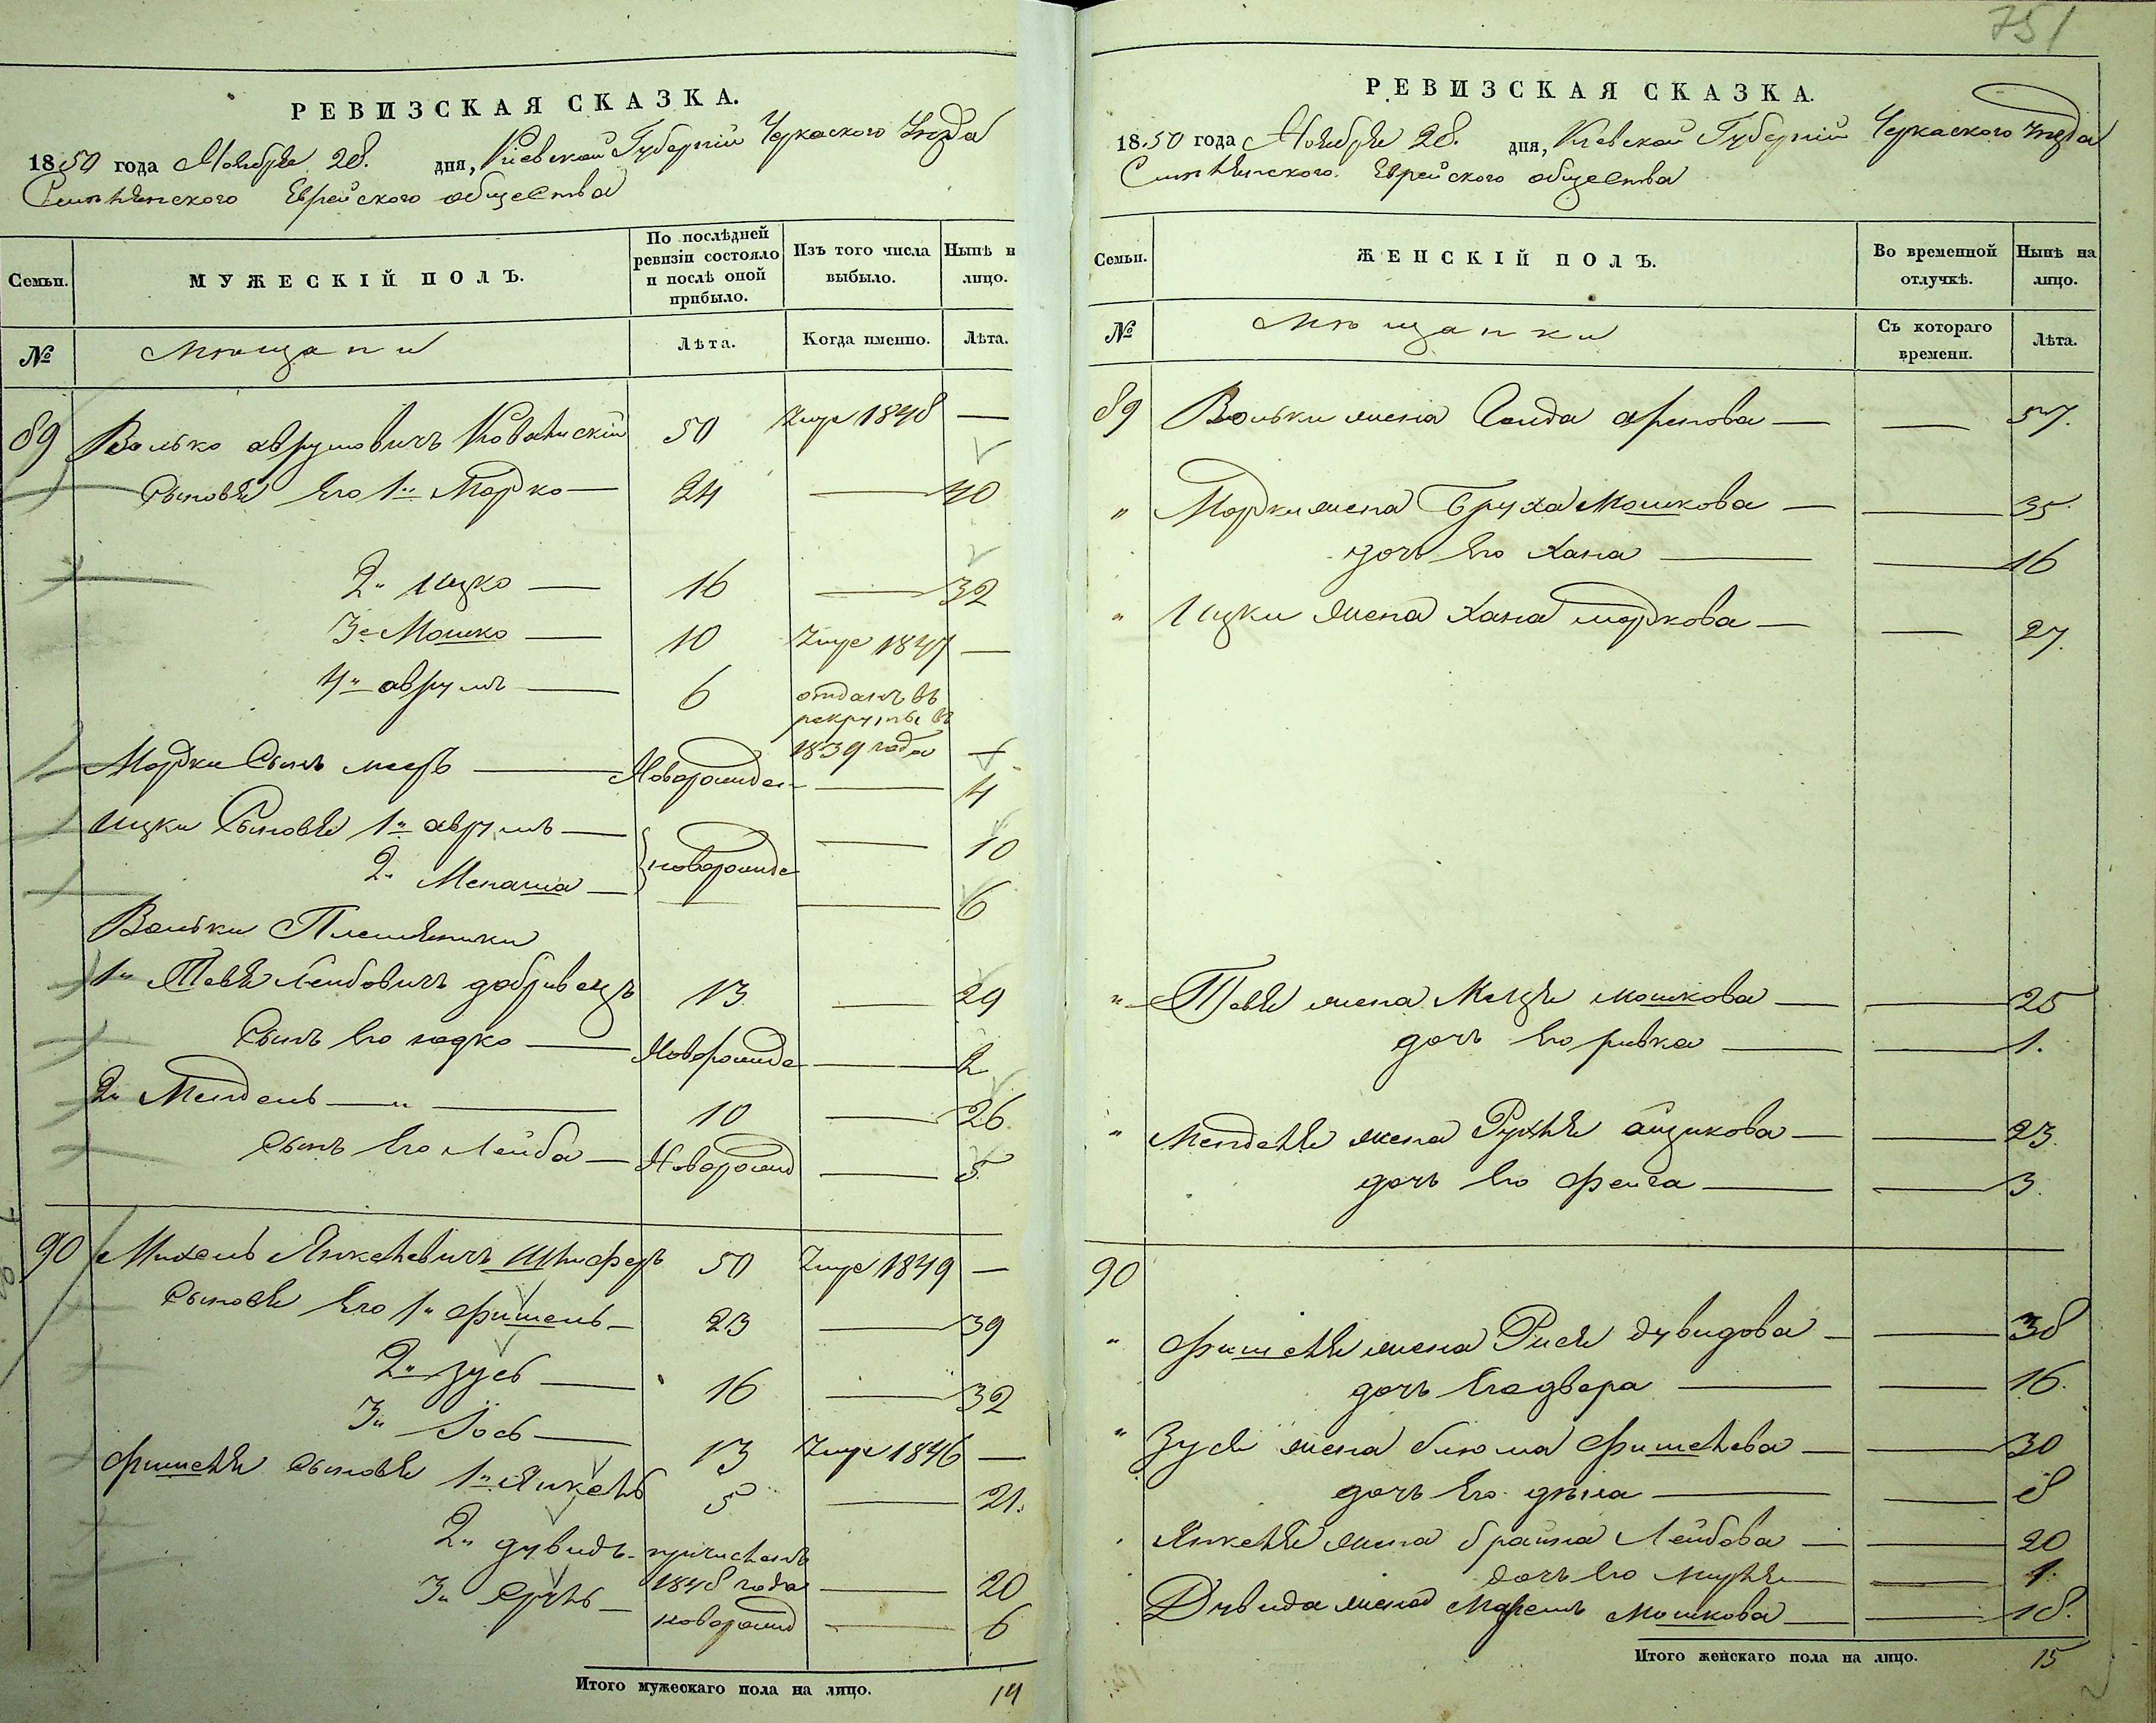 751
РЕВИЗСКАЯ СКАЗКА.
1850 года Ноября 28. дня, Кіевской Губерніи Черкаского Уезда
Еврейского общества
Семьи.
МУЖЕСКІЙ ПОЛЪ.
По послѣдней ревизіи состояло и послѣ оной прибыло.
Изъ того числа выбыло.
Нынѣ н лицо.
№
мѣщани
Лѣта.
Когда именно.
Лѣта.
89 Волько аврумовичъ 50 Умре 1848 —
Сыновя Его 1й Мордко — 24 — 40
2й ицко — 16 — 32
3й Мошко — 10 Умре 1847 —
4й аврумъ — 6 отданъ въ
рекруты въ
1839 года —
Мордки Сынъ мееръ — Новорожден — 4
ицки Сыновя 1й аврумъ — новорожде — 10
2й Менаша — 6
Вольки Племяники
1й Тевя Лейбовичъ 13 — 29
Сынъ Его — Новорожде — 2
2й Мендель — " — 10 — 26.
Сынъ Его Лейба — Новорожд — 5.
90 Михель Янкелевичъ 50 Умре 1849 —
Сыновя Его 1й Фишель — 23 — 39
2й зусь — 16 — 32
3й Іось — 13 Умре 1846 —
Фишеля Сыновя 1й Янкель 5 — 21.
2й дувидъ — причисленъ
1848 года — 20
3й — новорожд — 6
Итого мужескаго пола на лицо. 14
РЕВИЗСКАЯ СКАЗКА.
1850 года Ноября 28. дня, Кіевской Губерніи Черкаского Уезда
Еврейского общества
Семьи.
ЖЕНСКІЙ ПОЛЪ.
Во временной отлучкѣ.
Нынѣ на лицо.
№
мѣщанки
Съ котораго времени.
Лѣта.
89 Вольки жена — — 57.
" Мордки жена Бруха Мошкова — — 35.
дочь Его Хана — — 16
" Ицки жена Хана мордкова — — 27.
" Тевя жена мошкова — — 25
дочь Его ривка — — 1.
" Менделя жена Рухля — — 23.
дочь Его фейга — — 3.
90
" Фишеля жена Рися дувидова — — 38
дочь Его двера — — 16.
" Зуся жена блюма Фишелева — — 30
дочь Его — — 8
Янкеля жена брайна Лейбова — — 20
дочь Его — — 1.
Дувида жена Мошкова — — 18.
Итого женскаго пола на лицо. 15